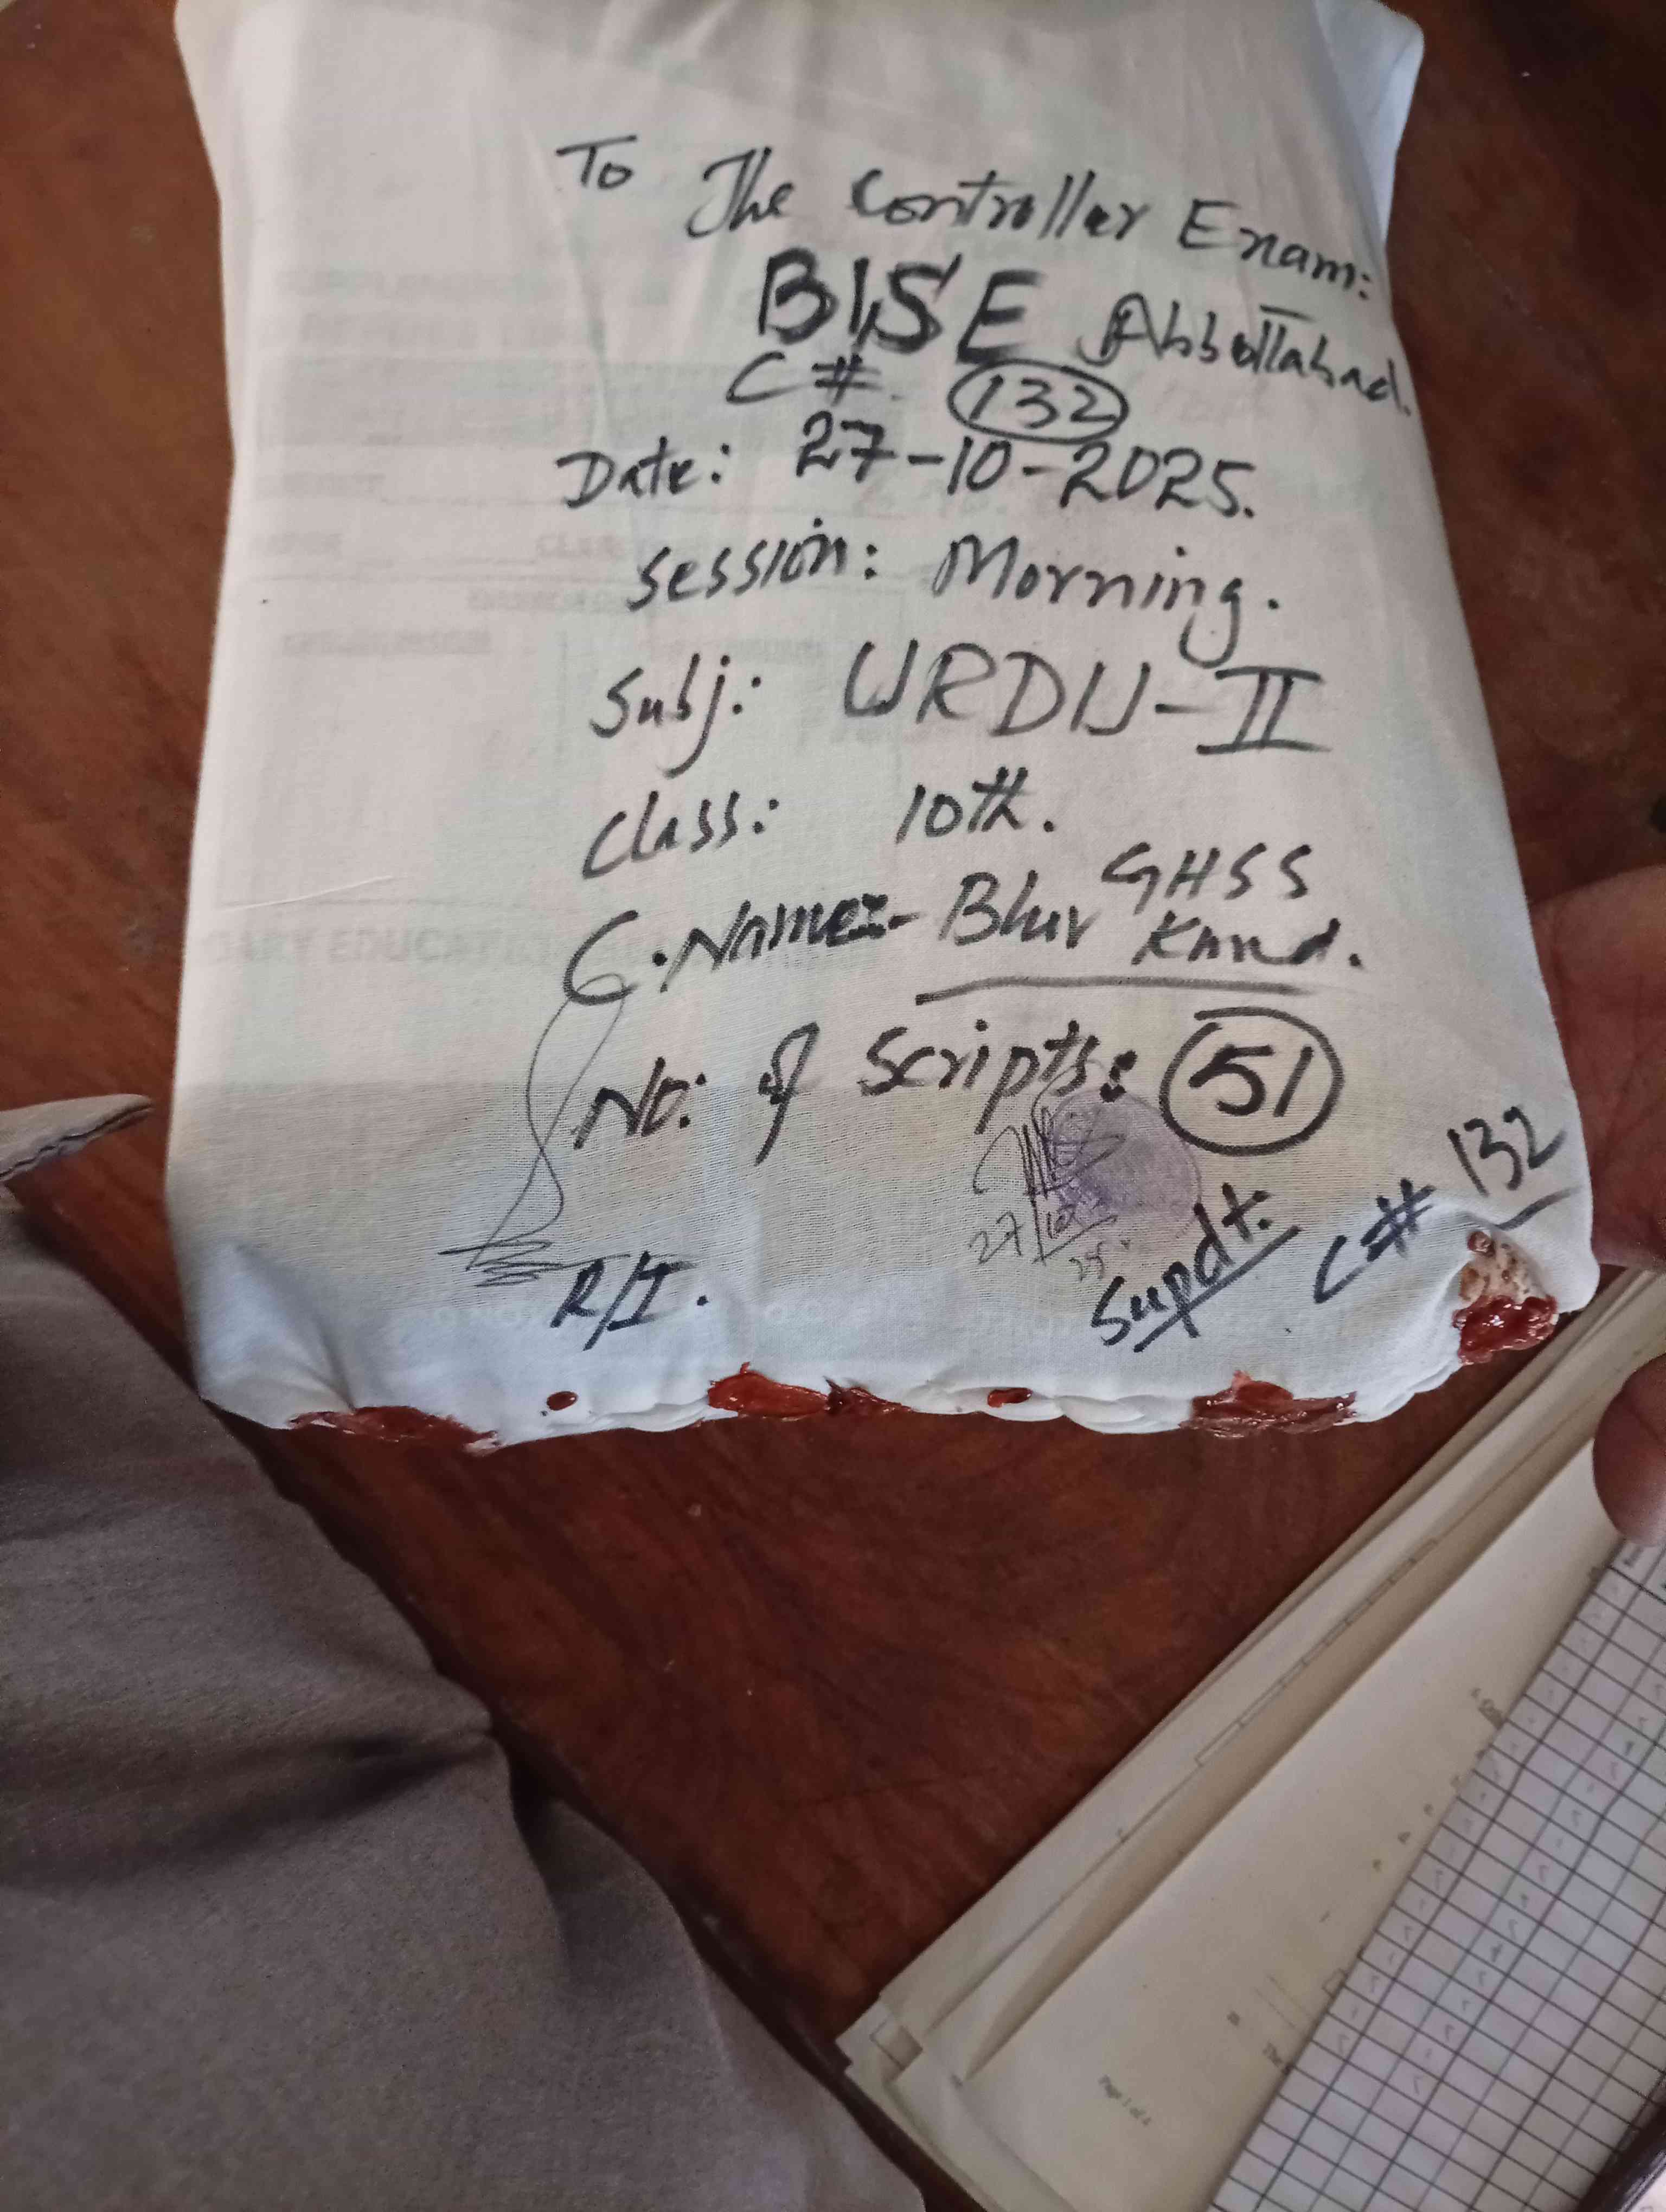 To
The Controller Exam:
BISE Abbottabad.
C# 132
Date: 27-10-2025.
Session: Morning.
Subj: URDU-II
Class: 10th.
C.Name:- GHSS
Bhur Kund.
No: of Scripts: 51
27/10/25.
R/I.
Supdt.
C# 132
Page 1 of 4